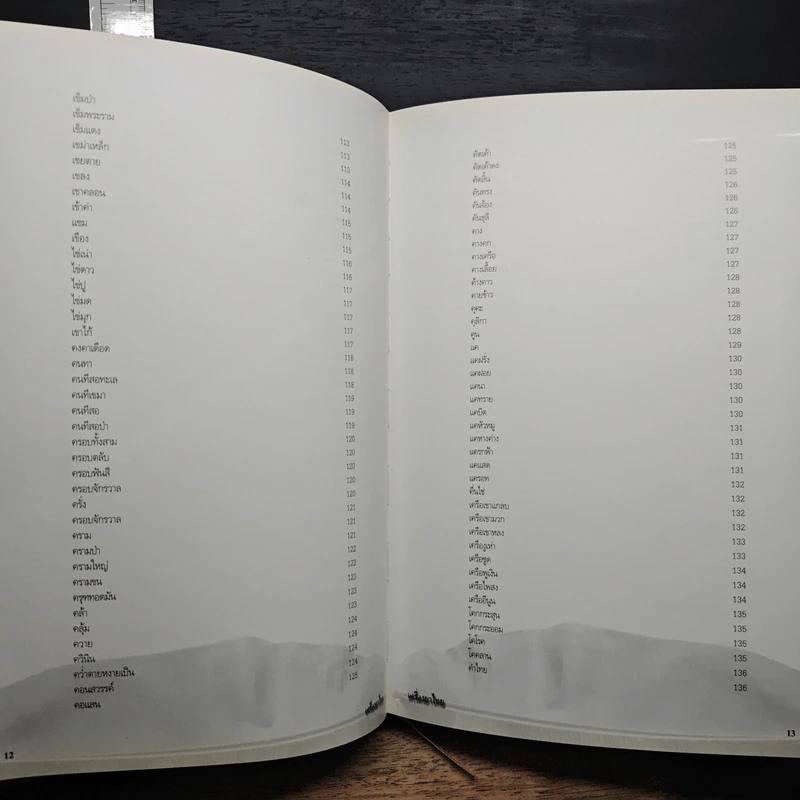 เข็มป่า 113
เข็มพระราม 113
เข็มแดง 113
เขม่าเหล็ก 114
เขยตาย 114
เขลง 114
เขาคลอน 115
เข้าค่า 115
แขม 115
เขือง 116
ไข่เน่า 116
ไข่ดาว 117
ไข่ปู 117
ไข่มด 117
ไข่มุก 117
เขาไก้ 117
คงคาเดือด 118
คนทา 118
คนทีสอทะเล 118
คนทีเขมา 119
คนทีสอ 119
คนทีสอป่า 119
ครอบทั้งสาม 120
ครอบตลับ 120
ครอบฟันสี 120
ครอบจักรวาล 120
ครั่ง 120
ครอบจักรวาล 121
คราม 121
ครามป่า 121
ครามใหญ่ 122
ครามขน 122
ครุฑทอดมัน 123
คล้า 123
คลุ้ม 123
ควาย 124
ควินิน 124
คว่ำตายหงายเป็น 124
คอนสวรรค์ 124
คอแลน 125
12
คัดเค้า 125
คัดเค้าดง 125
คัดลิ้น 125
คันทรง 126
คันจ้อง 126
คันธุลี 126
คาง 127
คางคก 127
คางเครือ 127
คางเลื้อย 127
ค้างคาว 128
คายข้าว 128
คุดะ 128
คุลิกา 128
คูน 128
แค 129
แคฝรั่ง 130
แคฝอย 130
แคนา 130
แคทราย 130
แคบิด 130
แคหัวหมู 131
แคหางค่าง 131
แครกฟ้า 131
แคแสด 131
แครอท 132
คืนไข่ 132
เครือเขาแกลบ 132
เครือเขามวก 132
เครือเขาหลง 133
เครืองูเห่า 133
เครือซูด 134
เครือพูเงิน 134
เครือไพสง 134
เครืออีนูน 135
โคกกระสุน 135
โคกกระออม 135
โคโรค 135
โคคลาน 136
คำไทย 136
เครื่องยาไทย
13